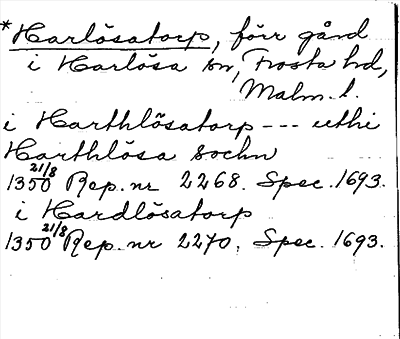 *Harlösatorp, förr gård
i Harlösa sn, Frosta hd,
Malm. l.
i Harthlösatorp --- uthi
Harthlösa sochn
1350 21/8 Rep. nr 2268. Spec. 1693.
i Hardlösatorp
1350 21/8 Rep. nr 2270, Spec. 1693.